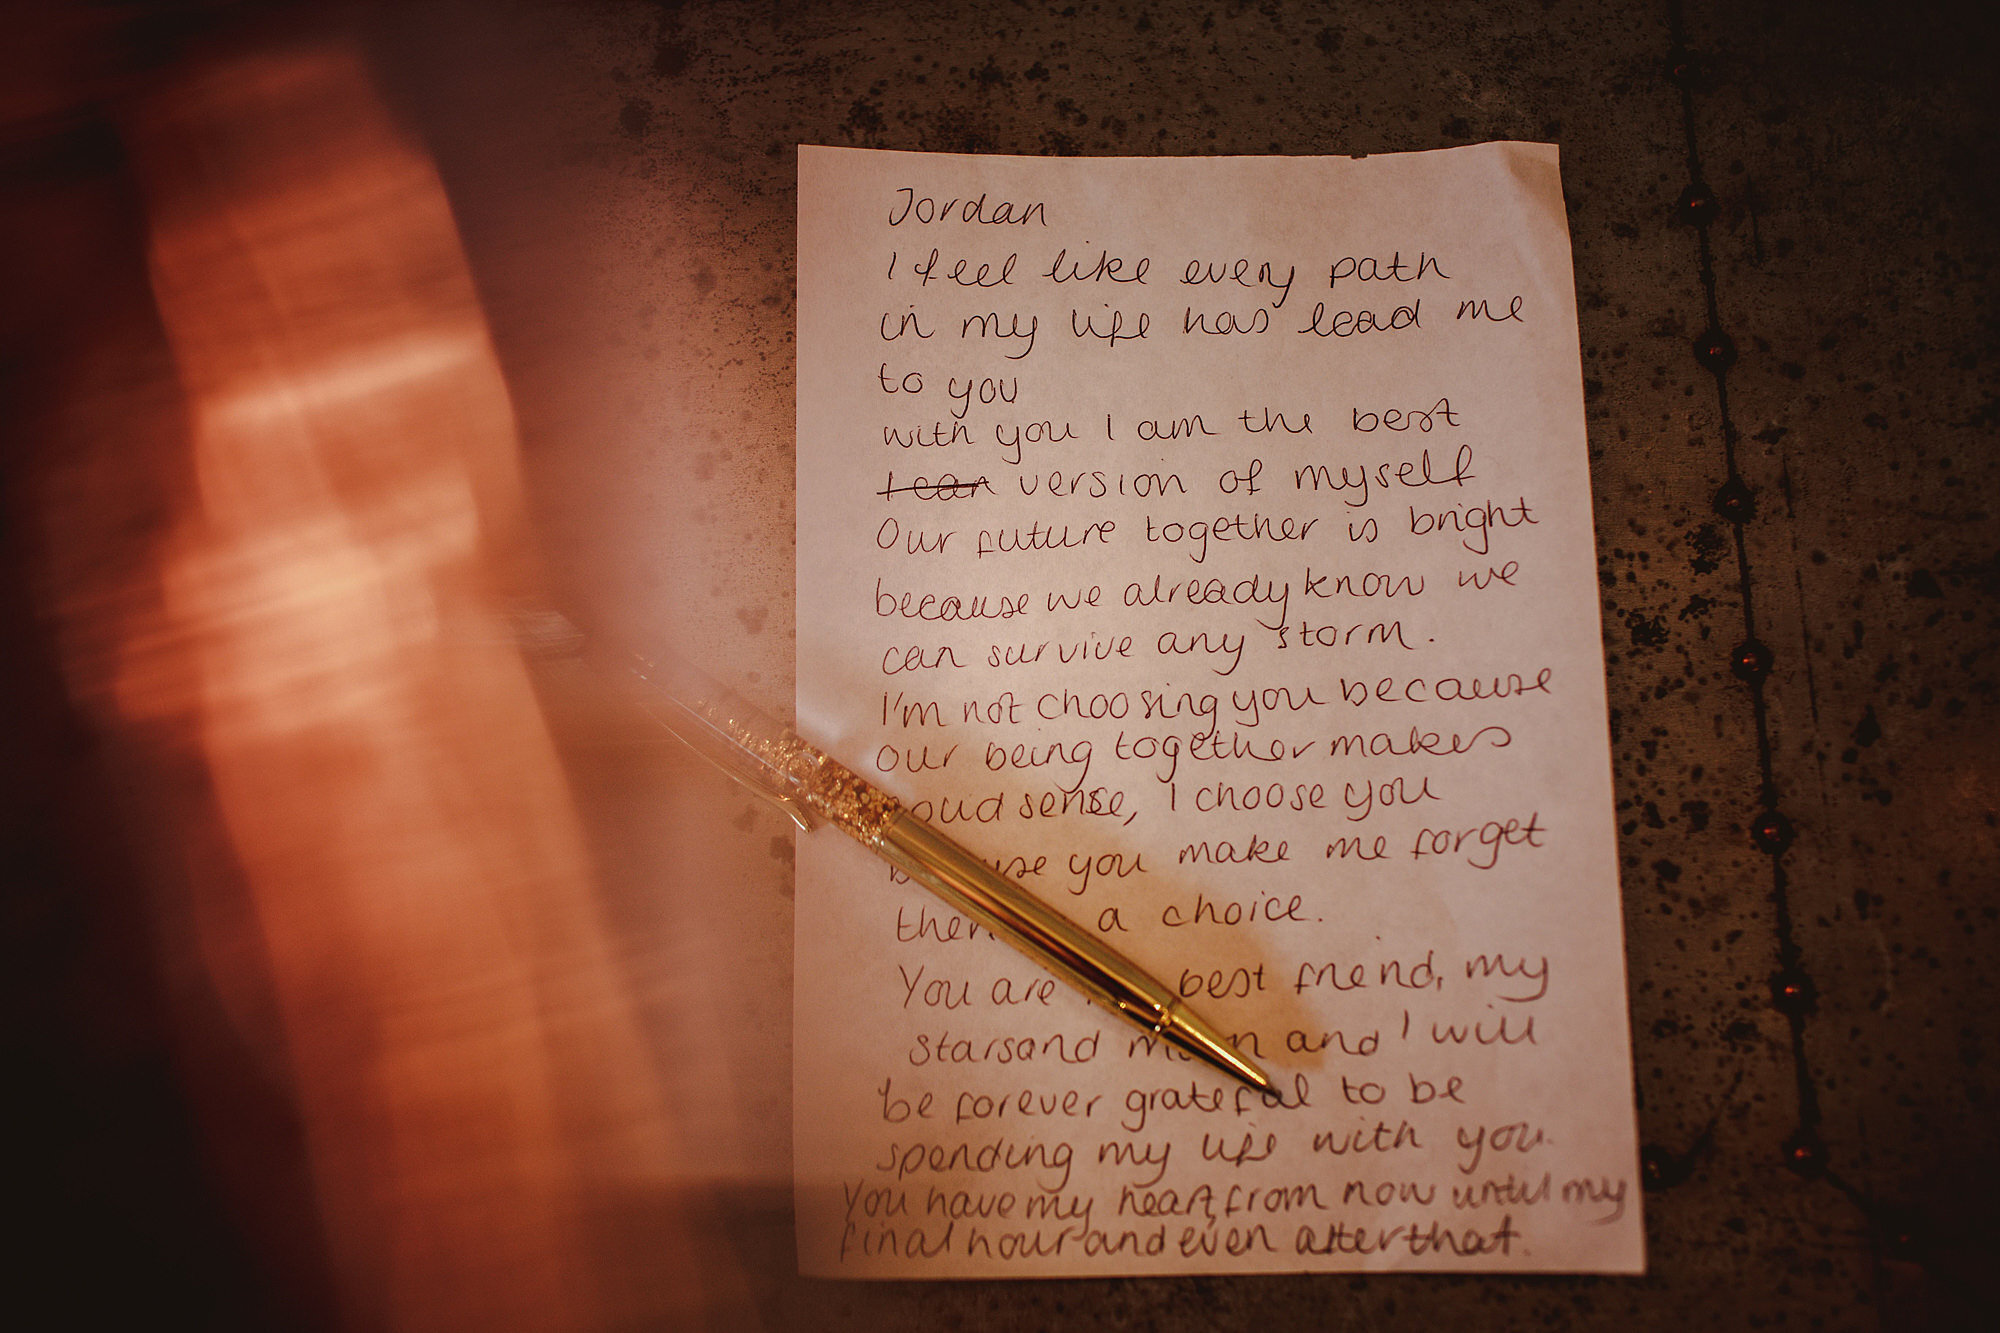 Jordan
I feel like every path
in my life has lead me
to you
with you I am the best
I can version of myself
Our future together is bright
because we already know we
can survive any storm.
I'm not choosing you because
our being together makes
sense, I choose you
you make me forget
a choice.
You are best friend, my
stars and and I will
be forever grateful to be
spending my life with you.
You have my heart, from now until my
final hour and even after that.